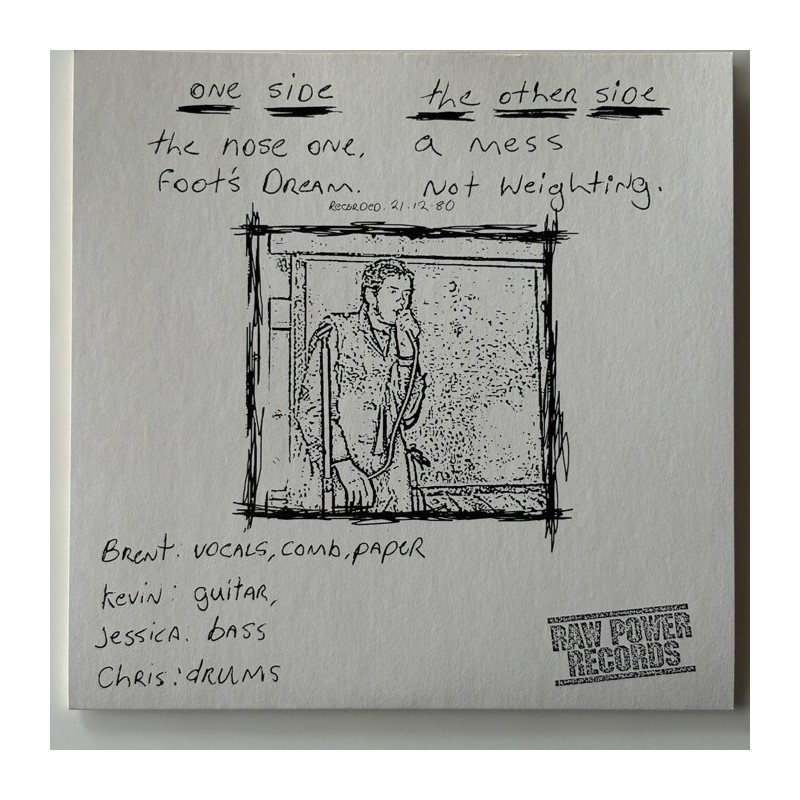 one side
the nose one.
Foot's Dream.
the other side
a mess
Not Weighting.
Recorded. 21.12.80
Brent: vocals, comb, paper
Kevin: guitar,
Jessica: bass
Chris: drums
RAW POWER
RECORDS